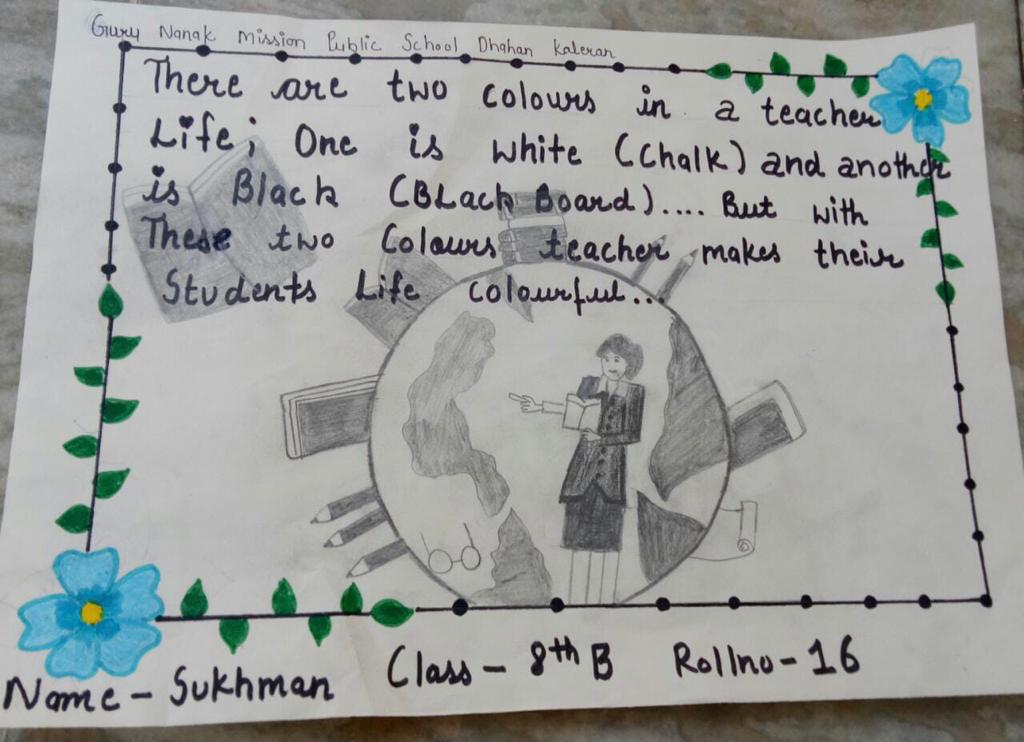 Guru Nanak Mission Public School Dhahan Kaleran
There are two colours in a teacher
Life; One is white (Chalk) and another
is Black (BLack Board).... But with
These two Colours teacher makes their
Students Life colourful...
Name - Sukhman Class - 8th B Rollno - 16